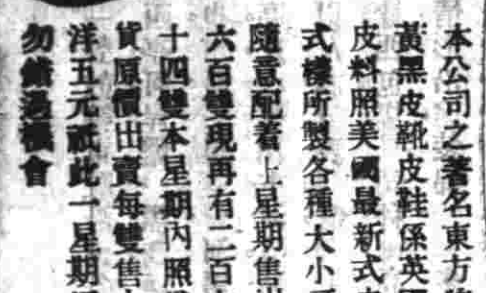 本公司之著名東方
黃黑皮靴皮鞋係英
皮料照美國最新式
式樣所製各種大小
隨意配着上星期售出
六百雙現再有二百
十四雙本星期內照
貨原價出賣每雙售
洋五元祇此一星期
勿錯過機會